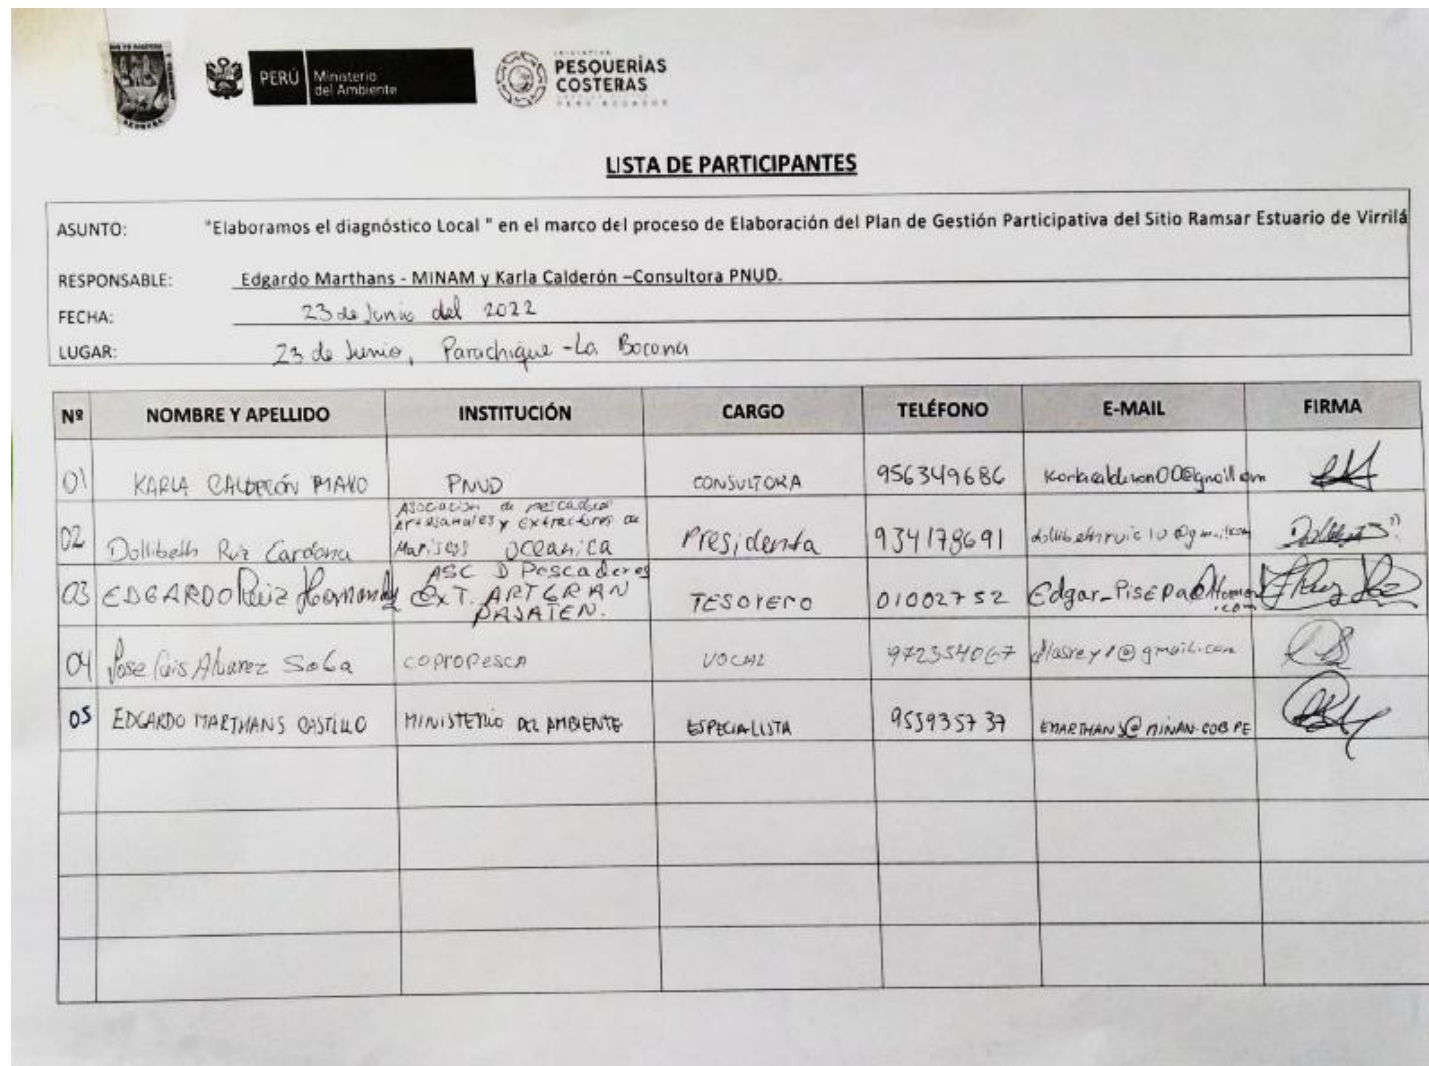 SECHURA
PERÚ Ministerio del Ambiente
INICIATIVA
PESQUERÍAS
COSTERAS
PERÚ ECUADOR
LISTA DE PARTICIPANTES
ASUNTO: "Elaboramos el diagnóstico Local " en el marco del proceso de Elaboración del Plan de Gestión Participativa del Sitio Ramsar Estuario de Virrilá
RESPONSABLE: Edgardo Marthans - MINAM y Karla Calderón –Consultora PNUD.
FECHA: 23 de Junio del 2022
LUGAR: 23 de Junio, Parachique - La Bocona
Nº NOMBRE Y APELLIDO INSTITUCIÓN CARGO TELÉFONO E-MAIL FIRMA
01 KARLA CALDERÓN PNUD CONSULTORA 956349686
02 Dollibeth Ruiz Cardona Asociación de pescadores Artesanales y extractores de Mariscos Oceanica Presidenta 934178691
03 EDGARDO Ruiz Hernandez ASC D Pescadores EXT. ARTGRAN PAJATEN. TESORERO 01002752
04 Jose Luis Alvarez COPROPESCA VOCAL 972354067
05 EDGARDO MARTHANS CASTILLO MINISTERIO DEL AMBIENTE ESPECIALISTA 955935737 EMARTHANS@MINAN.GOB.PE